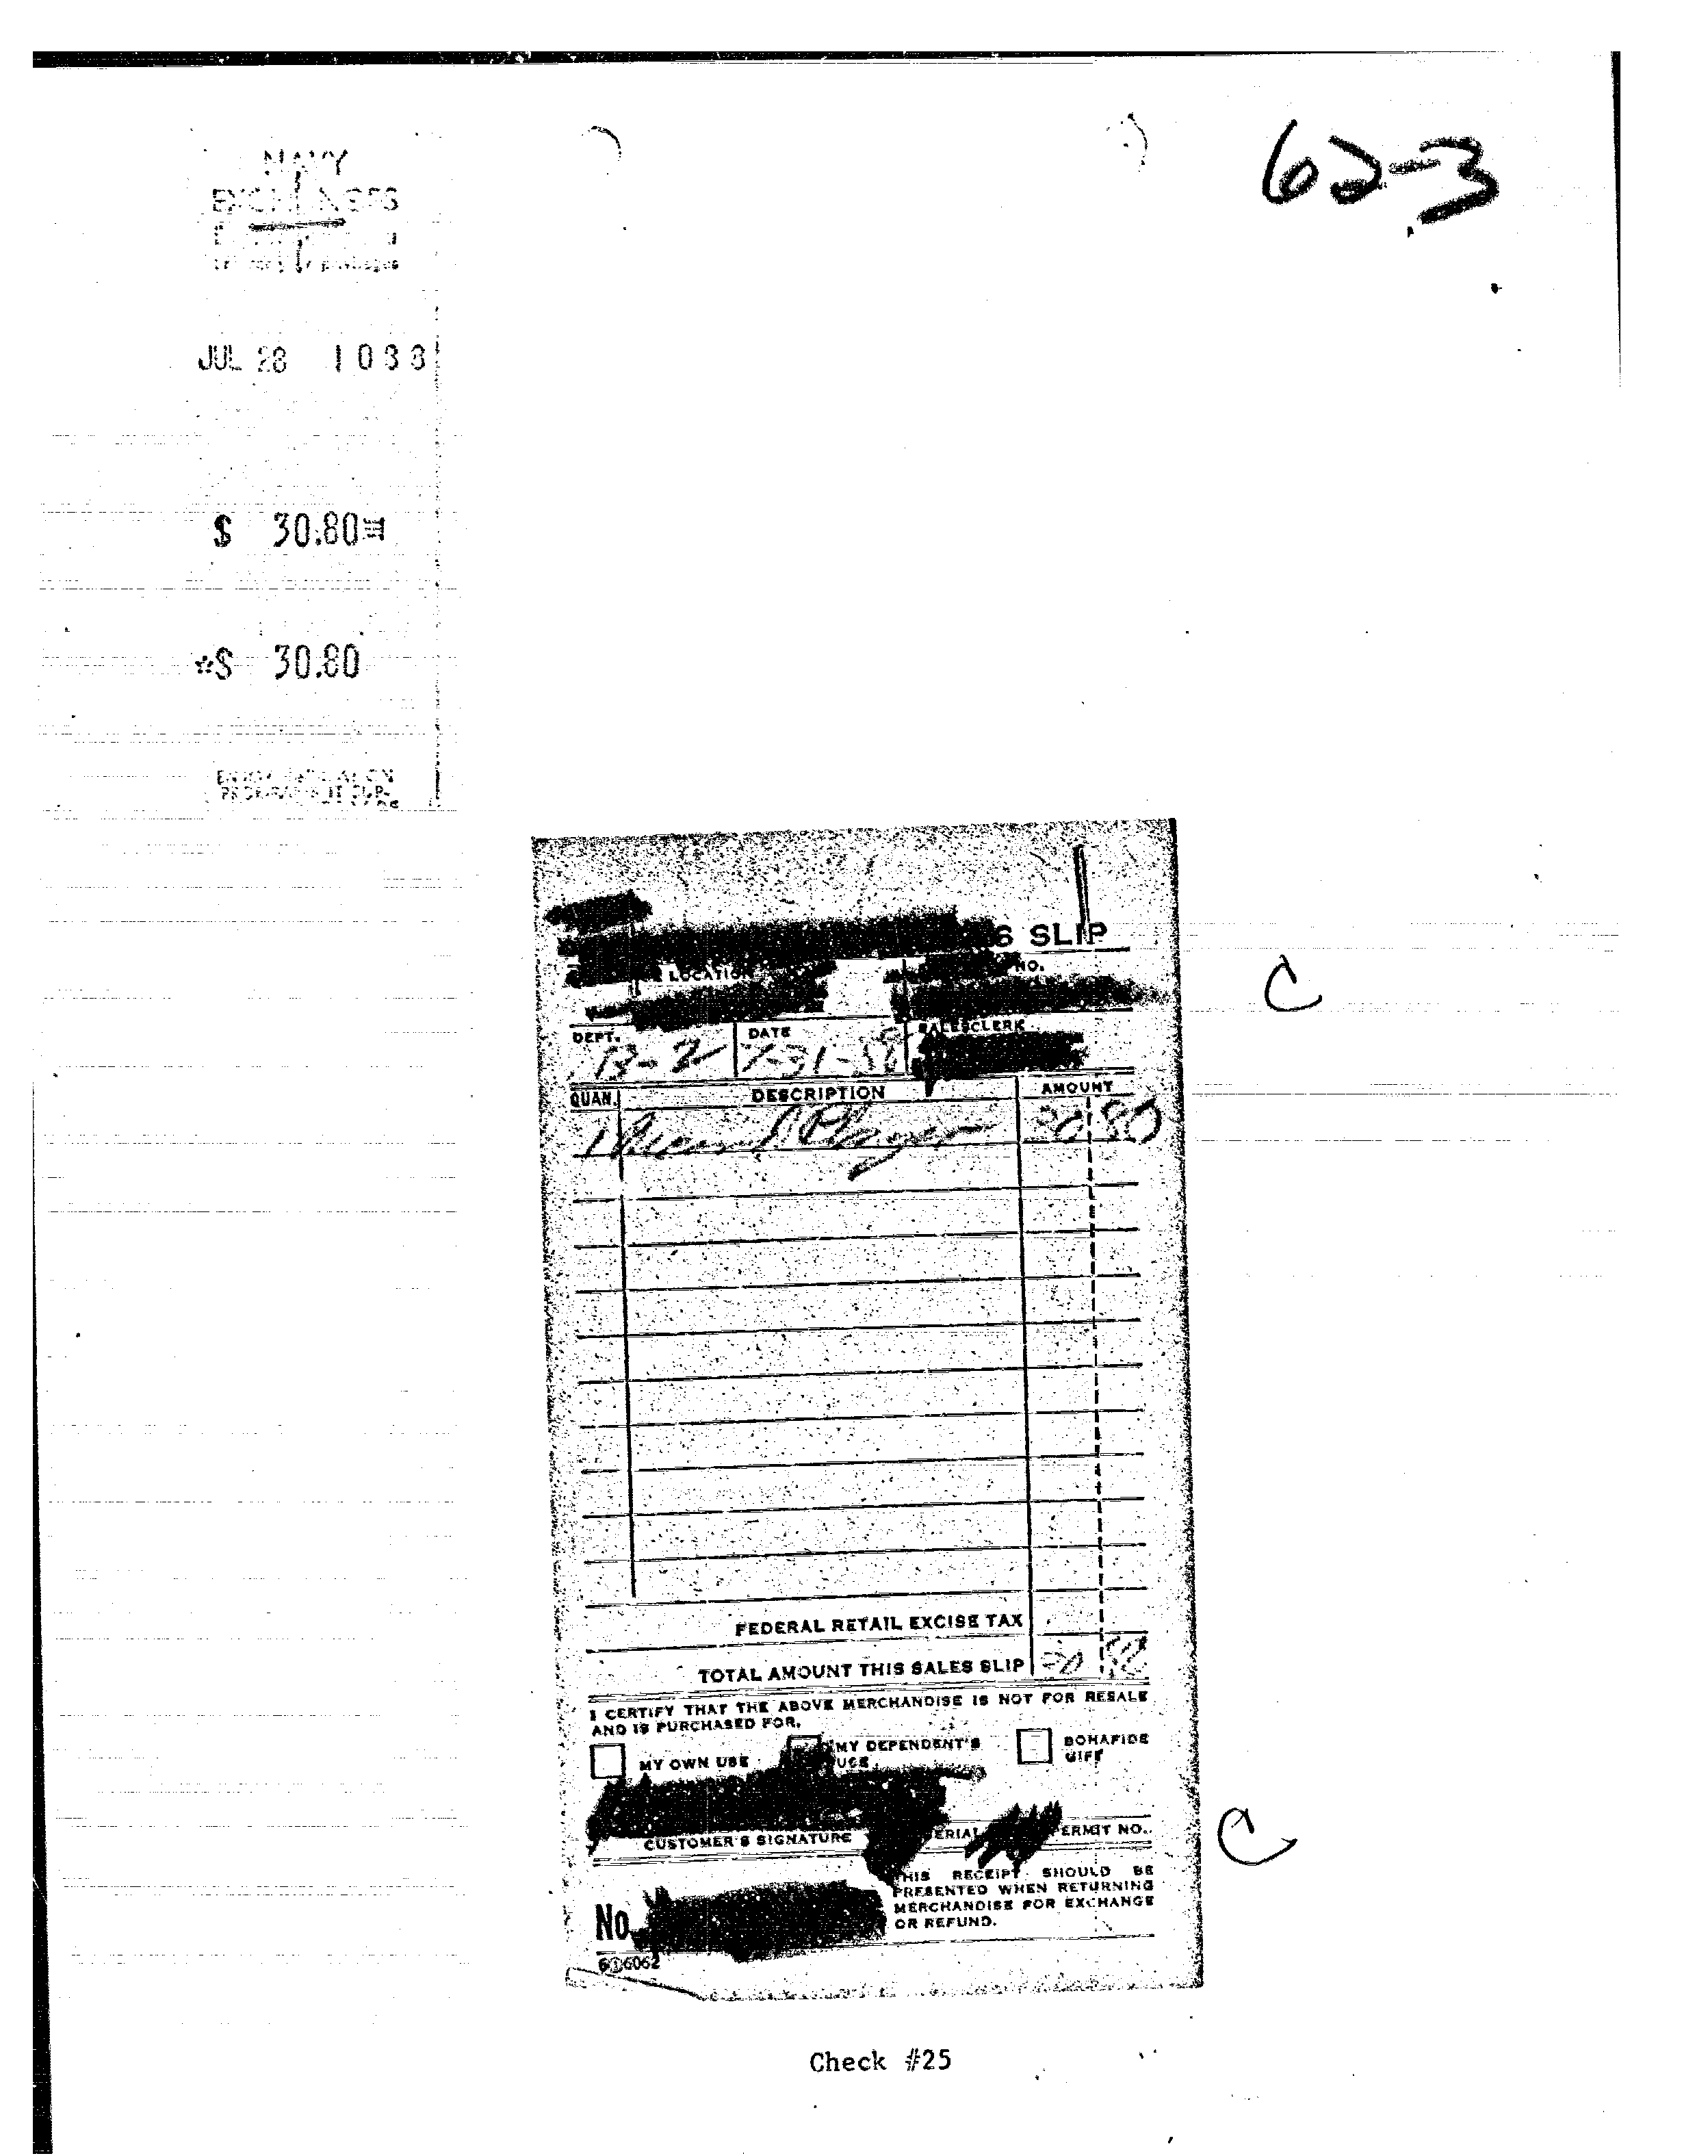 62-3
NAVY
EXCHANGES
JUL 28 1033
$ 30.80
☆$ 30.80
S SLIP
LOCATION
NO.
DEPT. DATE SALESCLERK
B-2 7-31-58
QUAN. DESCRIPTION AMOUNT
1 Record Player 30 80
FEDERAL RETAIL EXCISE TAX
TOTAL AMOUNT THIS SALES SLIP 30 80
I CERTIFY THAT THE ABOVE MERCHANDISE IS NOT FOR RESALE
AND IS PURCHASED FOR.
MY OWN USE
MY DEPENDENT'S
USE
BONAFIDE
GIFT
CUSTOMER'S SIGNATURE ERIAL ERMIT NO.
C
C
THIS RECEIPT SHOULD BE
PRESENTED WHEN RETURNING
MERCHANDISE FOR EXCHANGE
OR REFUND.
No
6062
Check #25